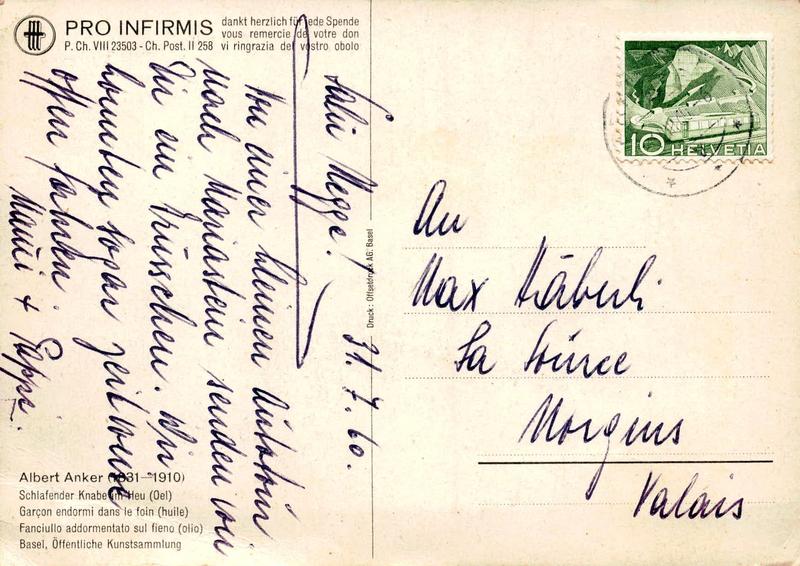 PRO INFIRMIS
P. Ch. VIII 23503 - Ch. Post. II 258
dankt herzlich für jede Spende
vous remercie de votre don
vi ringrazia del vostro obolo
Salü Megge!
31. 7. 60.
Von einer kleinen Autotour
nach Mariastein senden wir
Dir ein Grüsschen. Wir
konnten sogar zeitweise
offen fahren.
Mami + Pappi.
HELVETIA
10
An
Max Häberli
La Source
Morgins
Valais
Druck: Offsetdruck AG. Basel
Albert Anker (1831–1910)
Schlafender Knabe im Heu (Oel)
Garçon endormi dans le foin (huile)
Fanciullo addormentato sul fieno (olio)
Basel, Öffentliche Kunstsammlung